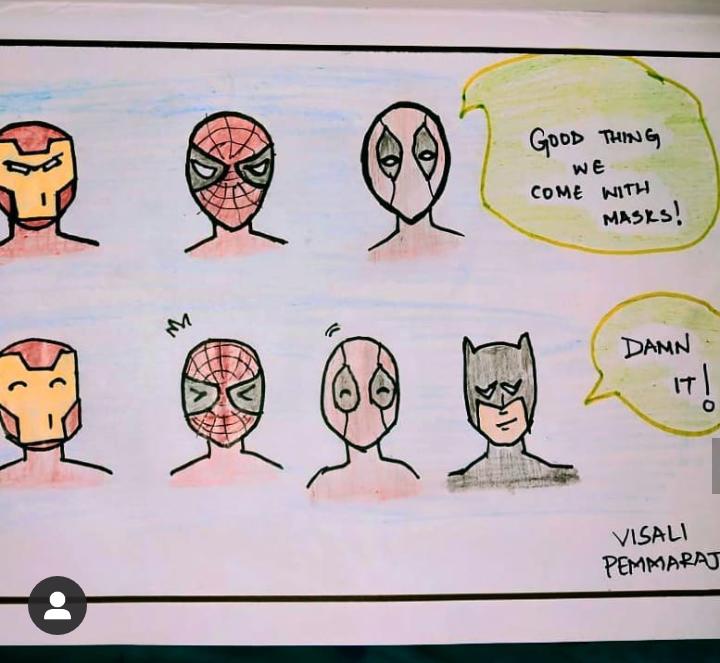 GOOD THING
WE
COME WITH
MASKS!
DAMN
IT!
VISALI
PEMMARAJ